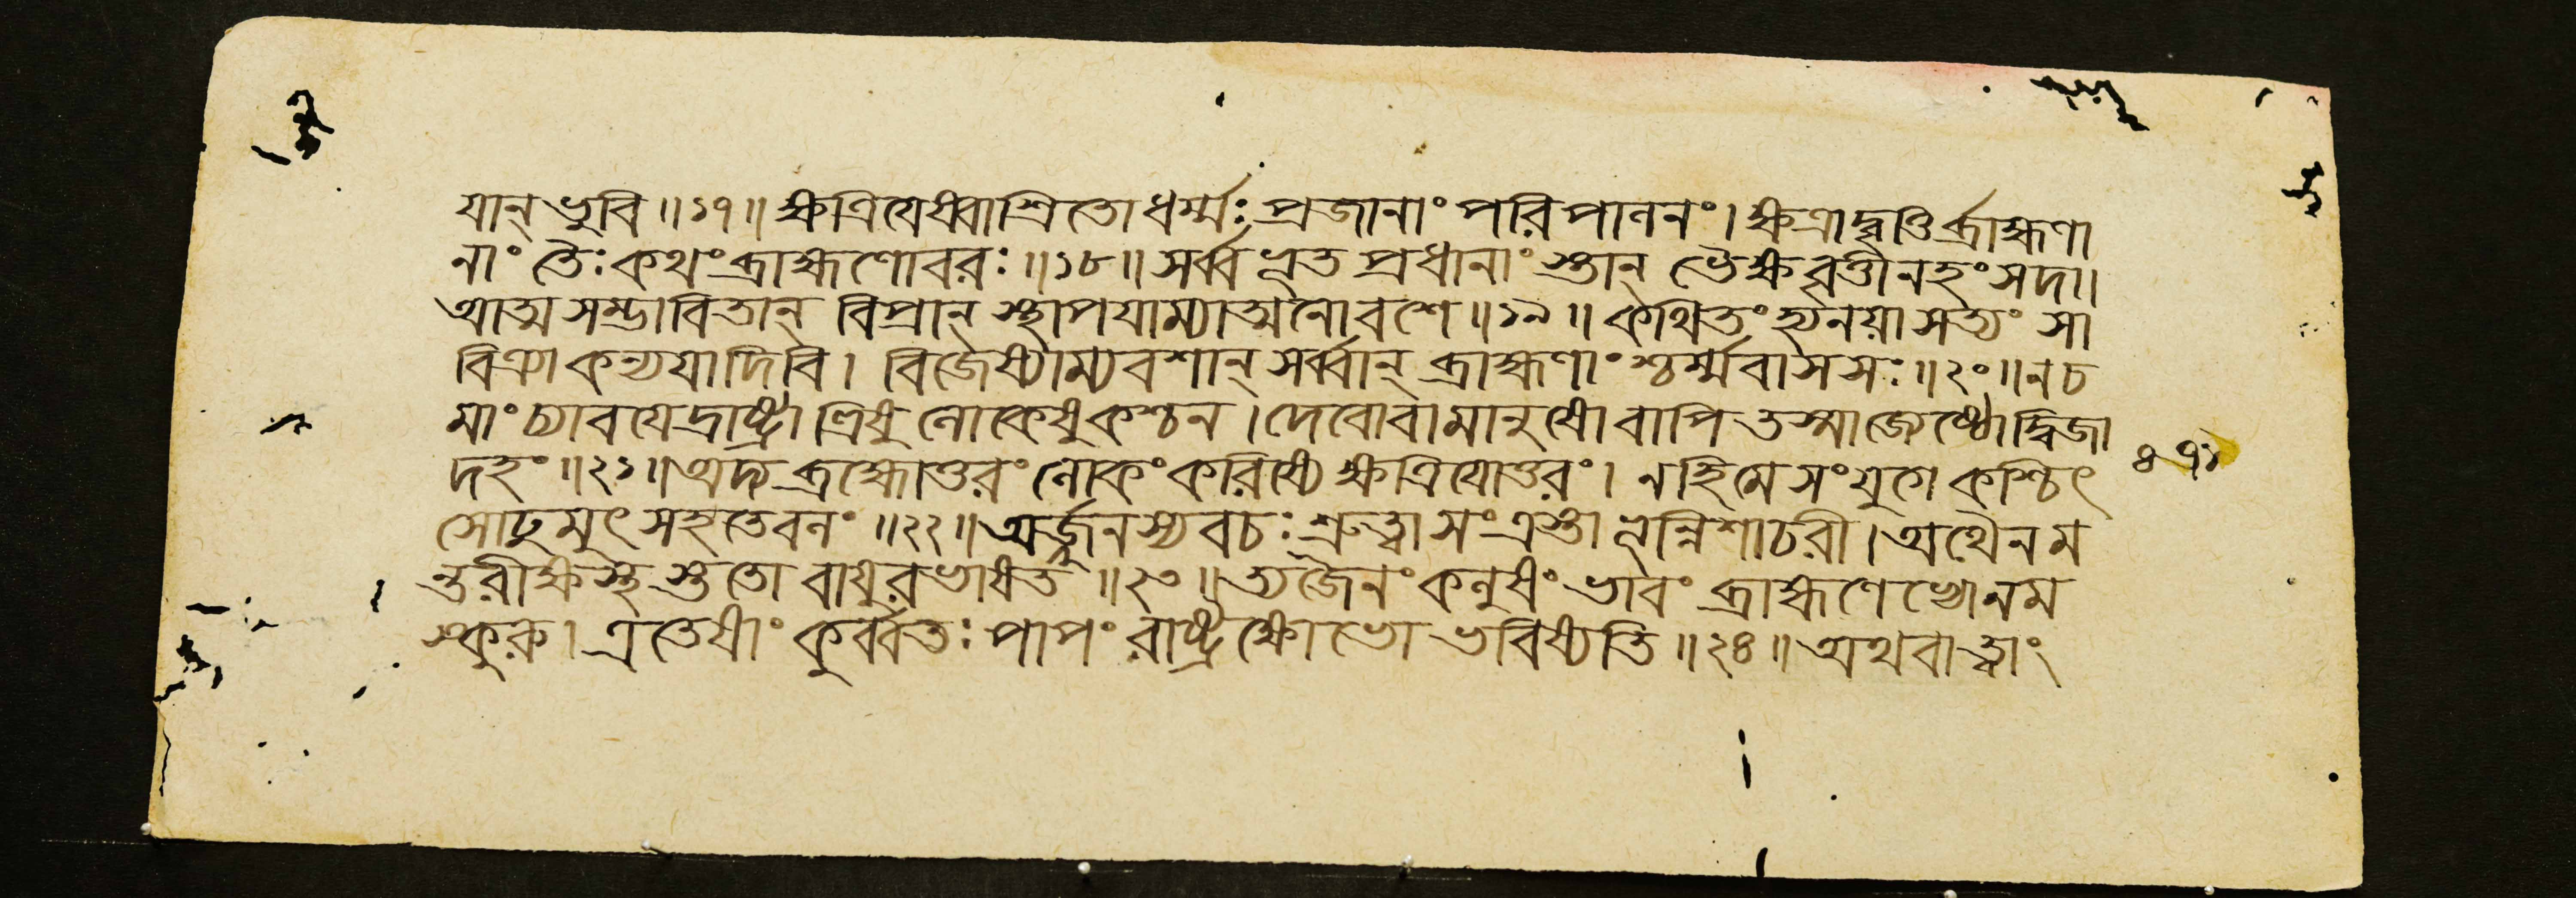 যান্ ভুবি॥১৭॥ক্ষত্রিযেষ্বাশ্রিতোধর্ম্মঃপ্রজানাংপরিপালনং।ক্ষত্রাদ্বৃত্তির্ব্রাহ্মণা
নাং তৈঃকথংব্রাহ্মণোবরঃ॥১৮॥সর্ব্বভূতপ্রধানাংস্তান্ ভৈক্ষবৃত্তীনহংসদা।
আত্মসম্ভাবিতান্ বিপ্রান্ স্থাপযাম্যাত্মনোবশে॥১৯॥কথিতংহ্যনয়াসত্যং সা
বিত্র্যাকন্যযাদিবি। বিজেষ্যাম্যবশান্ সর্ব্বান্ ব্রাহ্মণাংশ্চর্ম্মবাসসঃ॥২০॥নচ
মাং চ্যাবযেদ্রাষ্ট্রা ত্ত্রিষু লোকেষুকশ্চন।দেবোবামানুষোবাপি তস্মাজ্জেষ্ঠোদ্বিজা
দহং॥২১॥অদ্য ব্রহ্মোত্তরংলোকংকরিষ্যে ক্ষত্রিযোত্তরং। নহিমেসংযুগে কশ্চিৎ
সোঢুমুৎসহতেবলং॥২২॥অর্জ্জুনস্যবচঃশ্রুত্বাসংত্রস্তাভূন্নিশাচরী।অথৈনম
ন্তরীক্ষস্থ স্ততো বাযুরভাষত॥২৩॥ত্যজৈনং কলুষংভাবং ব্রাহ্মণেভ্যোনম
স্কুরু।এতেষাং কুর্ব্বতঃপাপং রাষ্ট্রক্ষোভো ভবিষ্যতি॥২৪॥অথবাত্বাং